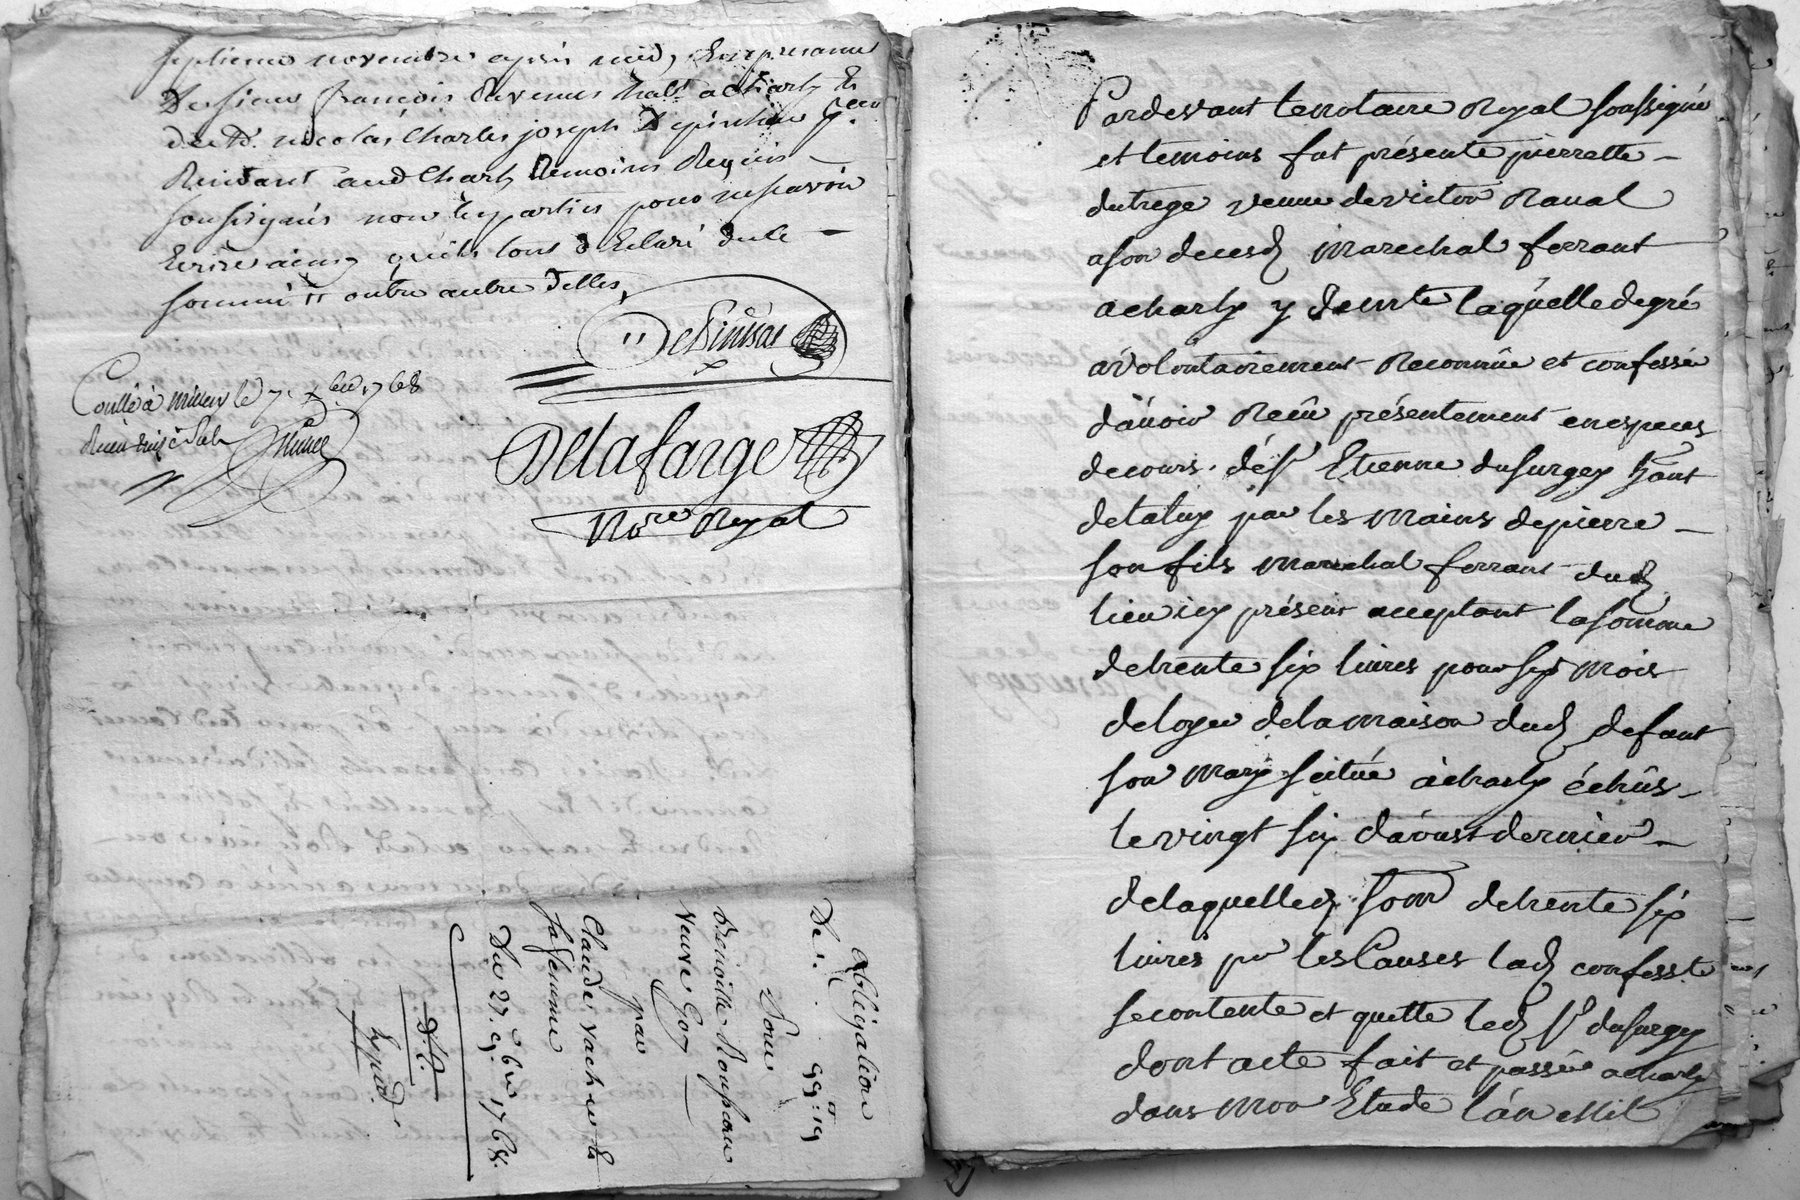 septieme novembre apres midy En presence
De sieur françois Ravenes habt a Charly Et
de Sr. nicolas Charles joseph
Residant aud Charly temoins Requis
soussignés non les parties pour ne sçavoir
Ecrire ainsy qu'ils l'ont déclaré de ce
sommés et outre autre Delles
Delafarge
Nore Royal
Conllé à millery le 7. xbre 1768
Reçu six s
Obligation
De . . 99 ᵗᵗ 19
Pour
Benoitte
Veuve Goy
par
Claude Vacher et
sa femme
Du 27. 9bre 1768.
Pardevant le notaire Royal soussigné
et temoins fut présente pierrette
dutrege veuve de victor Raval
a son deces marechal ferrant
a charly y demte laquelle de gré
a volontairement Reconnüe et confessée
d'avoir Reçû présentement en especes
de cours. de sr Etienne dusurgey habt
de taluy par les mains de pierre
son fils marechal ferrant dud
lieu icy présent acceptant la somme
de trente six livres pour six mois
de loyer de la maison dud defunt
son mary scitué à charly échûs
le vingt six d'avoust dernier
de laquelled. som de trente six
livres pr les Causes lad confesste
se contente et quitte led sr dusurgey
dont acte fait et passé a charly
dans mon Etude l'an Mil